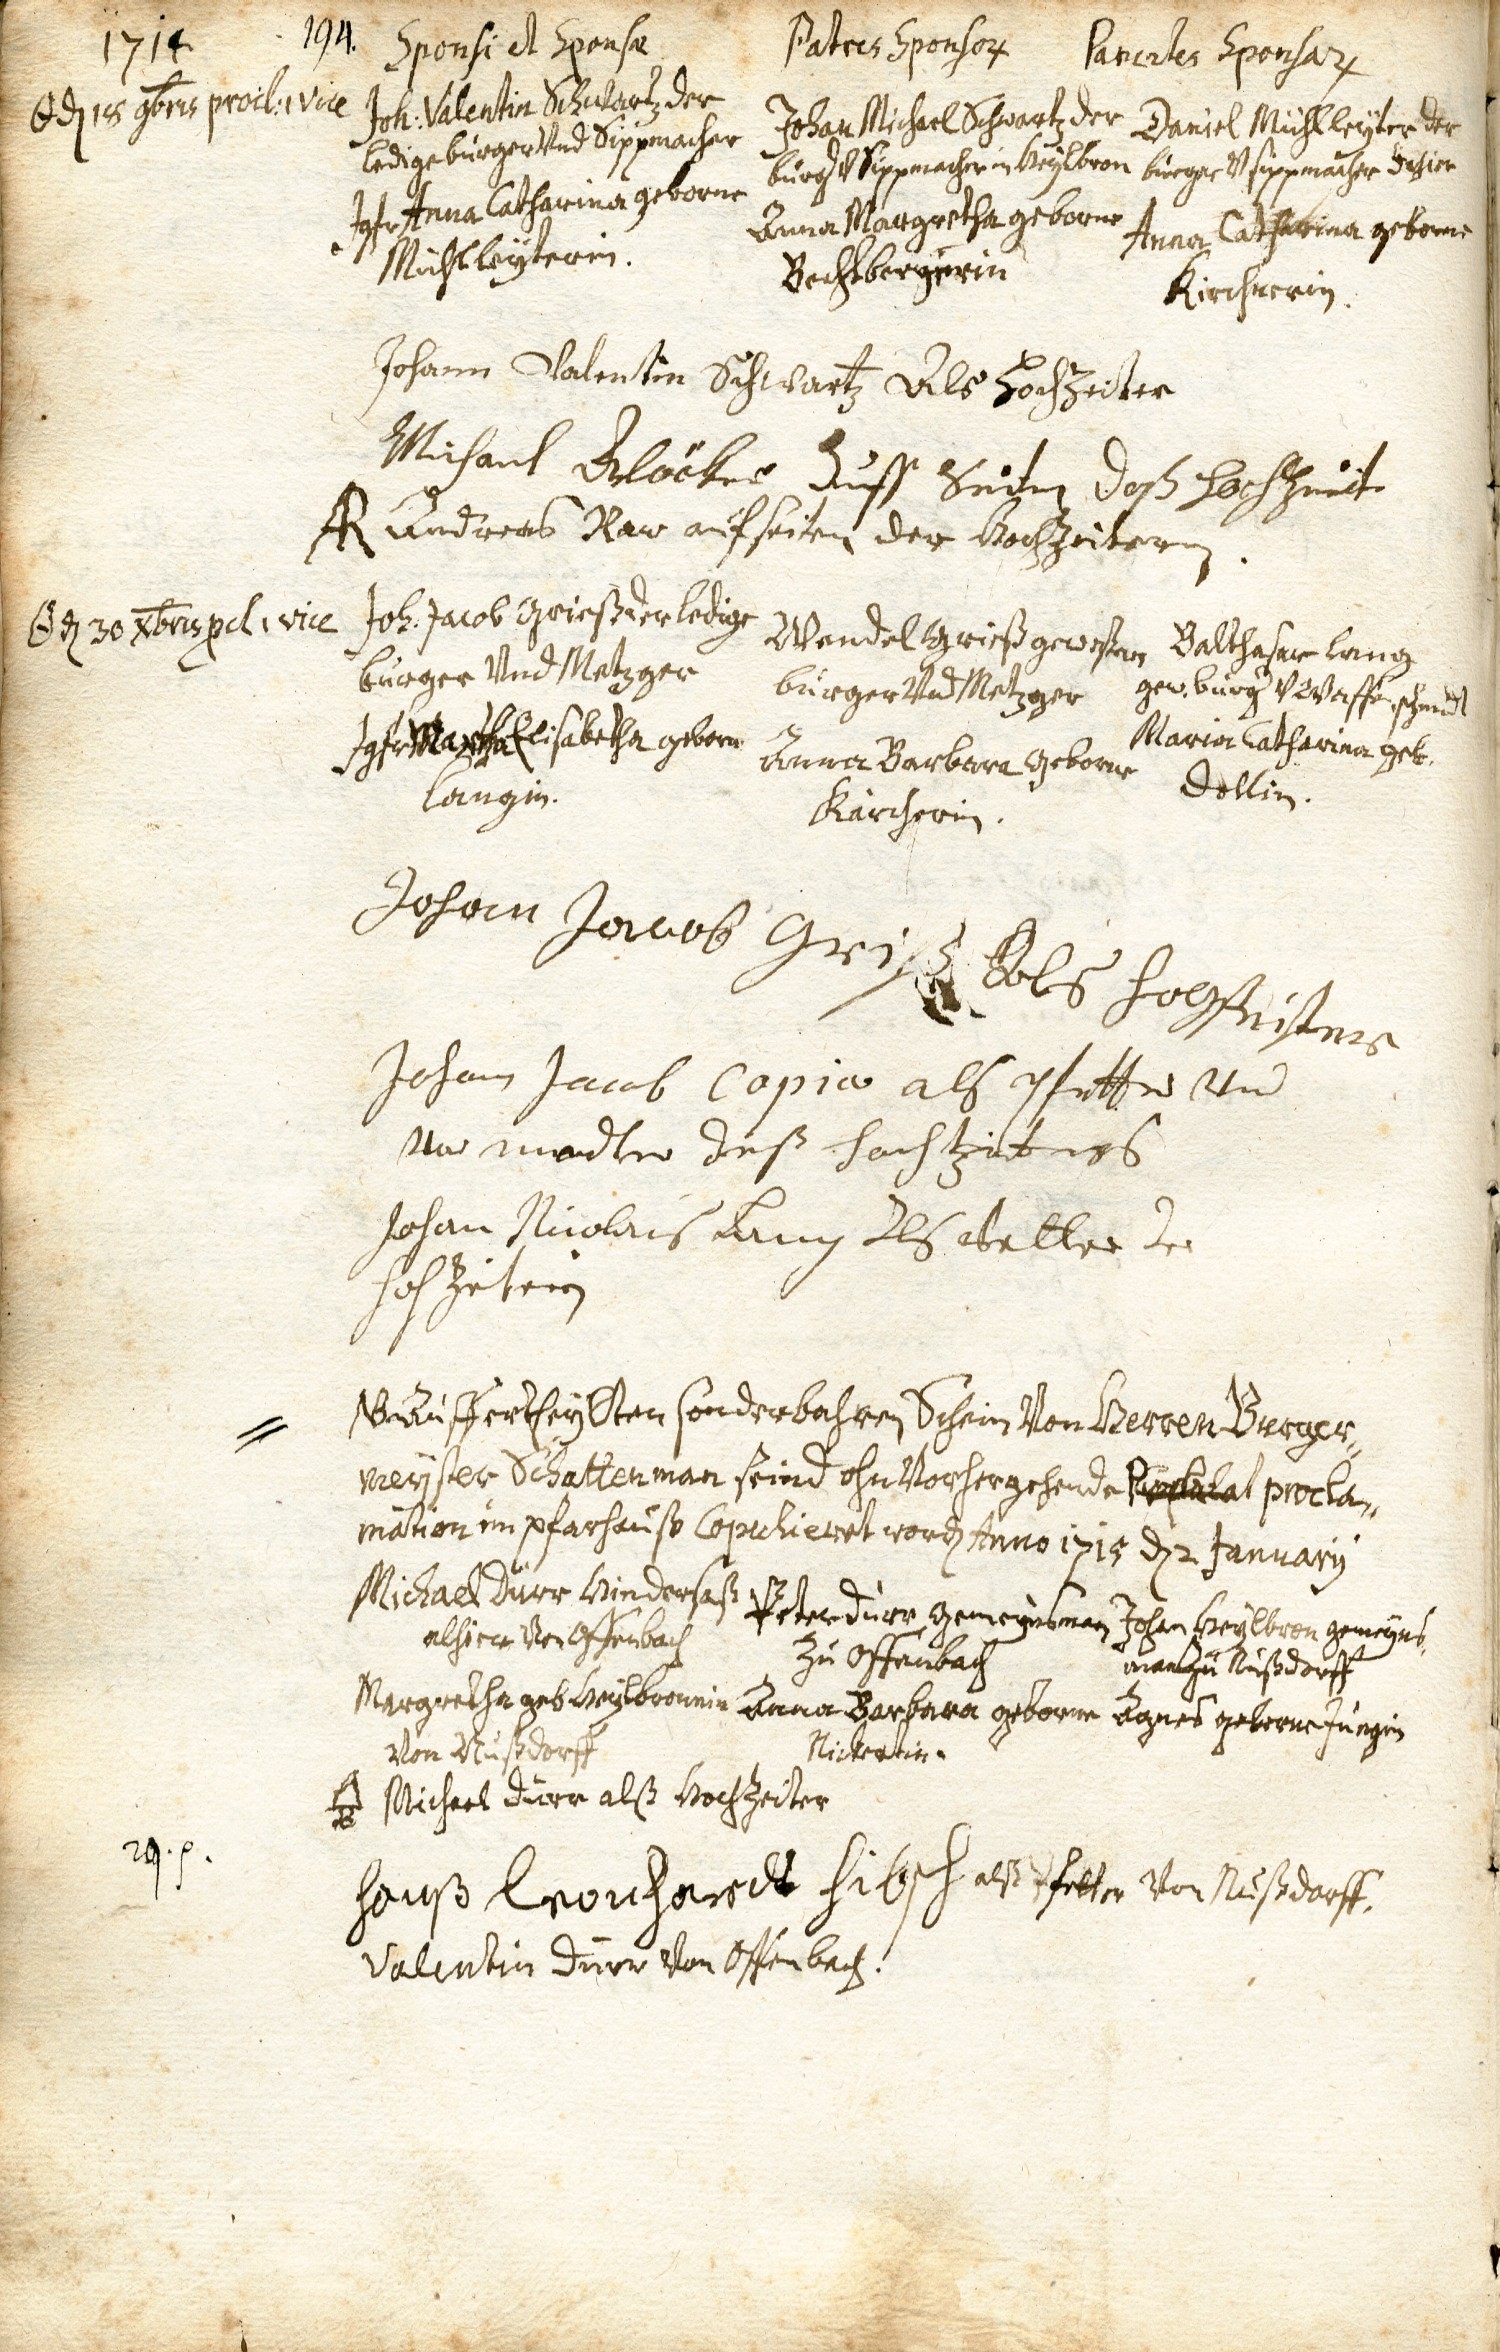 1714 194. Sponsi et Sponsæ Patres Sponsor Parentes Sponsar
d 18 9bris procl: 1 vice Joh: Valentin Schwartz der
ledige burger Und Sippmacher
Jgfr Anna Catharina geborne
Mühlleyterin.
Johan Michael Schwartz der
burg V Sippmacher in Heylbron
Anna Margretha geborne
Bechtbergerin
Daniel Mühlleyter der
burger V sippmacher
Anna Catharina geborne
Kirchnerin.
Johann Valentin Schwartz Als Hochzeiter
Michael Auff Seiten Deß Hochzeit
AR Andreas Raw auf seiten der Hochzeiterin.
d 30 Xbris pcl 1 vice Joh. Jacob Grieß der ledige
burger Und Metzger
Jgfr Martha Elisabetha geborn
Langin.
Wendel Grieß geweßner
burger Und Metzger
Anna Barbara geborne
Kärcherin.
Balthasar Lang
gew. burg V Waffenschmidt
Maria Catharina geb.
Dollin.
Johan Jacob Griß Als
Johan Jacob Copia als
deß hochtzeiters
Johan Nicolaus Lang Als vetter der
hochzeiterin
sonderbahren Schein Von Herren Burger„
meyster Schattenman seind ohn Vorhergehende procla„
mation im pfarhauß Copulieret word Anno 1715 d 2. January
Michael Dürr Hindersaß
alhier Von Offenbach
Margretha geb Heylbronnin
Von Nußdorff
Peter Dürr Gemeynsman
Zu Offenbach
Anna Barbara geborne
Johan Heylbron gemeyns
man Zu Nußdorff
Agnes geborne Jungin
Michael Dürr alß Hochzeiter
29. p.
Hanß Leonhardt alß Pfetter Von Nußdorff.
Valentin Dürr Von Offenbach.